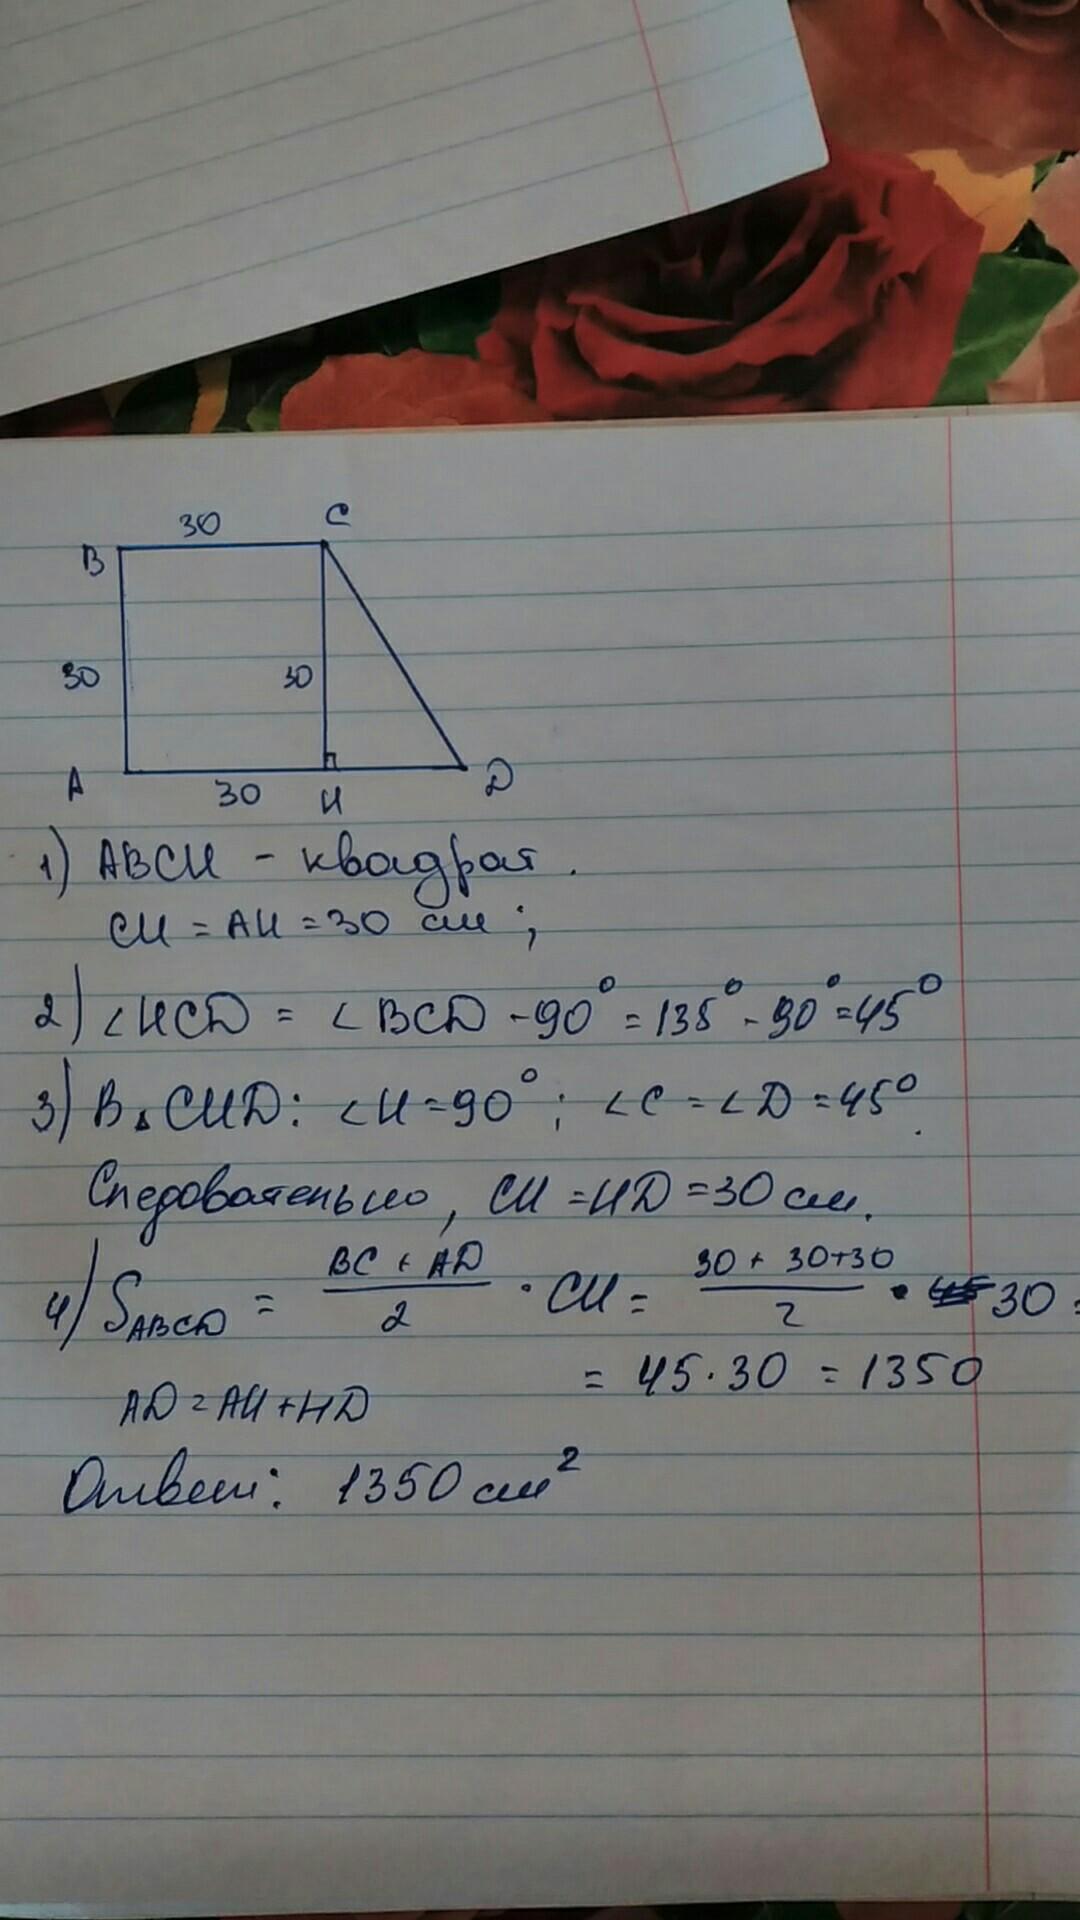 30
C
B
30
30
A
30
H
D
1) ABCH - квадрат.
CH = AH = 30 см;
2) ∠HCD = ∠BCD - 90° = 135° - 90° = 45°
3) В △ CHD: ∠H = 90°; ∠C = ∠D = 45°.
Следовательно, CH = HD = 30 см.
4) S_ABCD = (BC + AD)/2 · CH = (30 + 30+30)/2 · 30 =
= 45 · 30 = 1350
AD = AH + HD
Ответ: 1350 см²